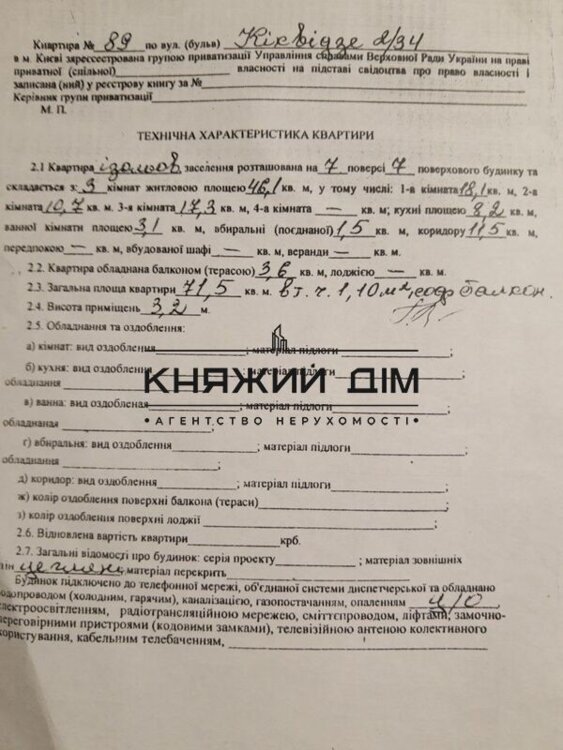 Квартира № 89 по вул. (бульв) Кіквідзе 2/34
в м. Києві зареєстрована групою приватизації Управління справами Верховної Ради України на праві
приватної (спільної) власності на підставі свідоцтва про право власності і
записана (ний) у реєстрову книгу за №
Керівник групи приватизації
М. П.
ТЕХНІЧНА ХАРАКТЕРИСТИКА КВАРТИРИ
2.1 Квартира ізольов заселення розташована на 7 поверсі 7 поверхового будинку та
складається з: 3 кімнат житловою площею 46,1 кв. м, у тому числі: 1-а кімната 18,1 кв. м, 2-а
кімната 10,7 кв. м. 3-я кімната 17,3 кв. м, 4-а кімната — кв. м; кухні площею 8,2 кв. м,
ванної кімнати площею 3,1 кв. м, вбиральні (поєднаної) 1,5 кв. м, коридору 11,5 кв. м,
передпокою — кв. м, вбудованої шафі — кв. м, веранди — кв. м.
2.2. Квартира обладнана балконом (терасою) 3,6 кв. м, лоджією — кв. м.
2.3. Загальна площа квартири 71,5 кв. м. в т. ч. 1,10 м², балкон.
2.4. Висота приміщень 3,2 м.
2.5. Обладнання та оздоблення:
а) кімнат: вид оздоблення ; матеріал підлоги ;
б) кухня: вид оздоблення ; матеріал підлоги ;
обладнання
КНЯЖИЙ ДІМ
в) ванна: вид оздоблення ; матеріал підлоги ;
•АГЕНТСТВО НЕРУХОМОСТІ•
обладнаная
г) вбиральня: вид оздоблення ; матеріал підлоги ;
обладнання
д) коридор: вид оздоблення ; матеріал підлоги ;
ж) колір оздоблення поверхні балкона (тераси) ;
з) колір оздоблення поверхні лоджії ;
2.6. Відновлена вартість квартири крб.
2.7. Загальні відомості про будинок: серія проекту ; матеріал зовнішніх
матеріал перекрить
Будинок підключено до телефонної мережі, об'єднаної системи диспетчерської та обладнано
водопроводом (холодним, гарячим), каналізацією, газопостачанням, опаленням ц/о
електроосвітленням, радіотрансляційною мережею, сміттєпроводом, ліфтами, замочно-
переговірними пристроями (кодовими замками), телевізійною антеною колективного
користування, кабельним телебаченням,